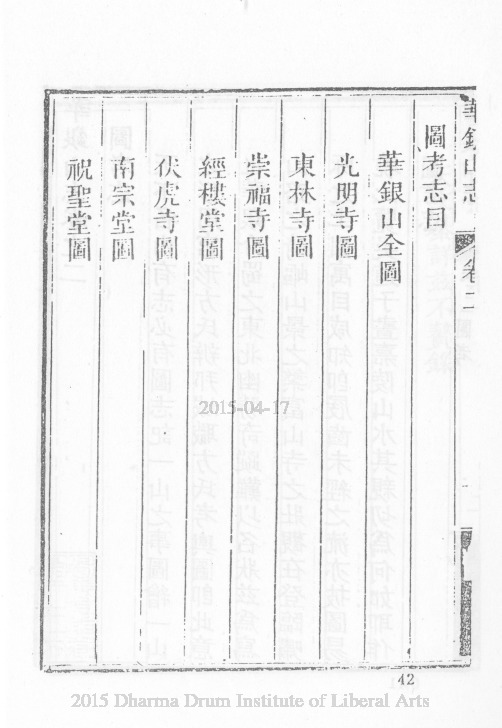 華銀山志 卷二
圖考志目
華銀山全圖
光明寺圖
東林寺圖
崇福寺圖
經樓堂圖
伏虎寺圖
南宗堂圖
祝聖堂圖
2015-04-17
42
2015 Dharma Drum Institute of Liberal Arts